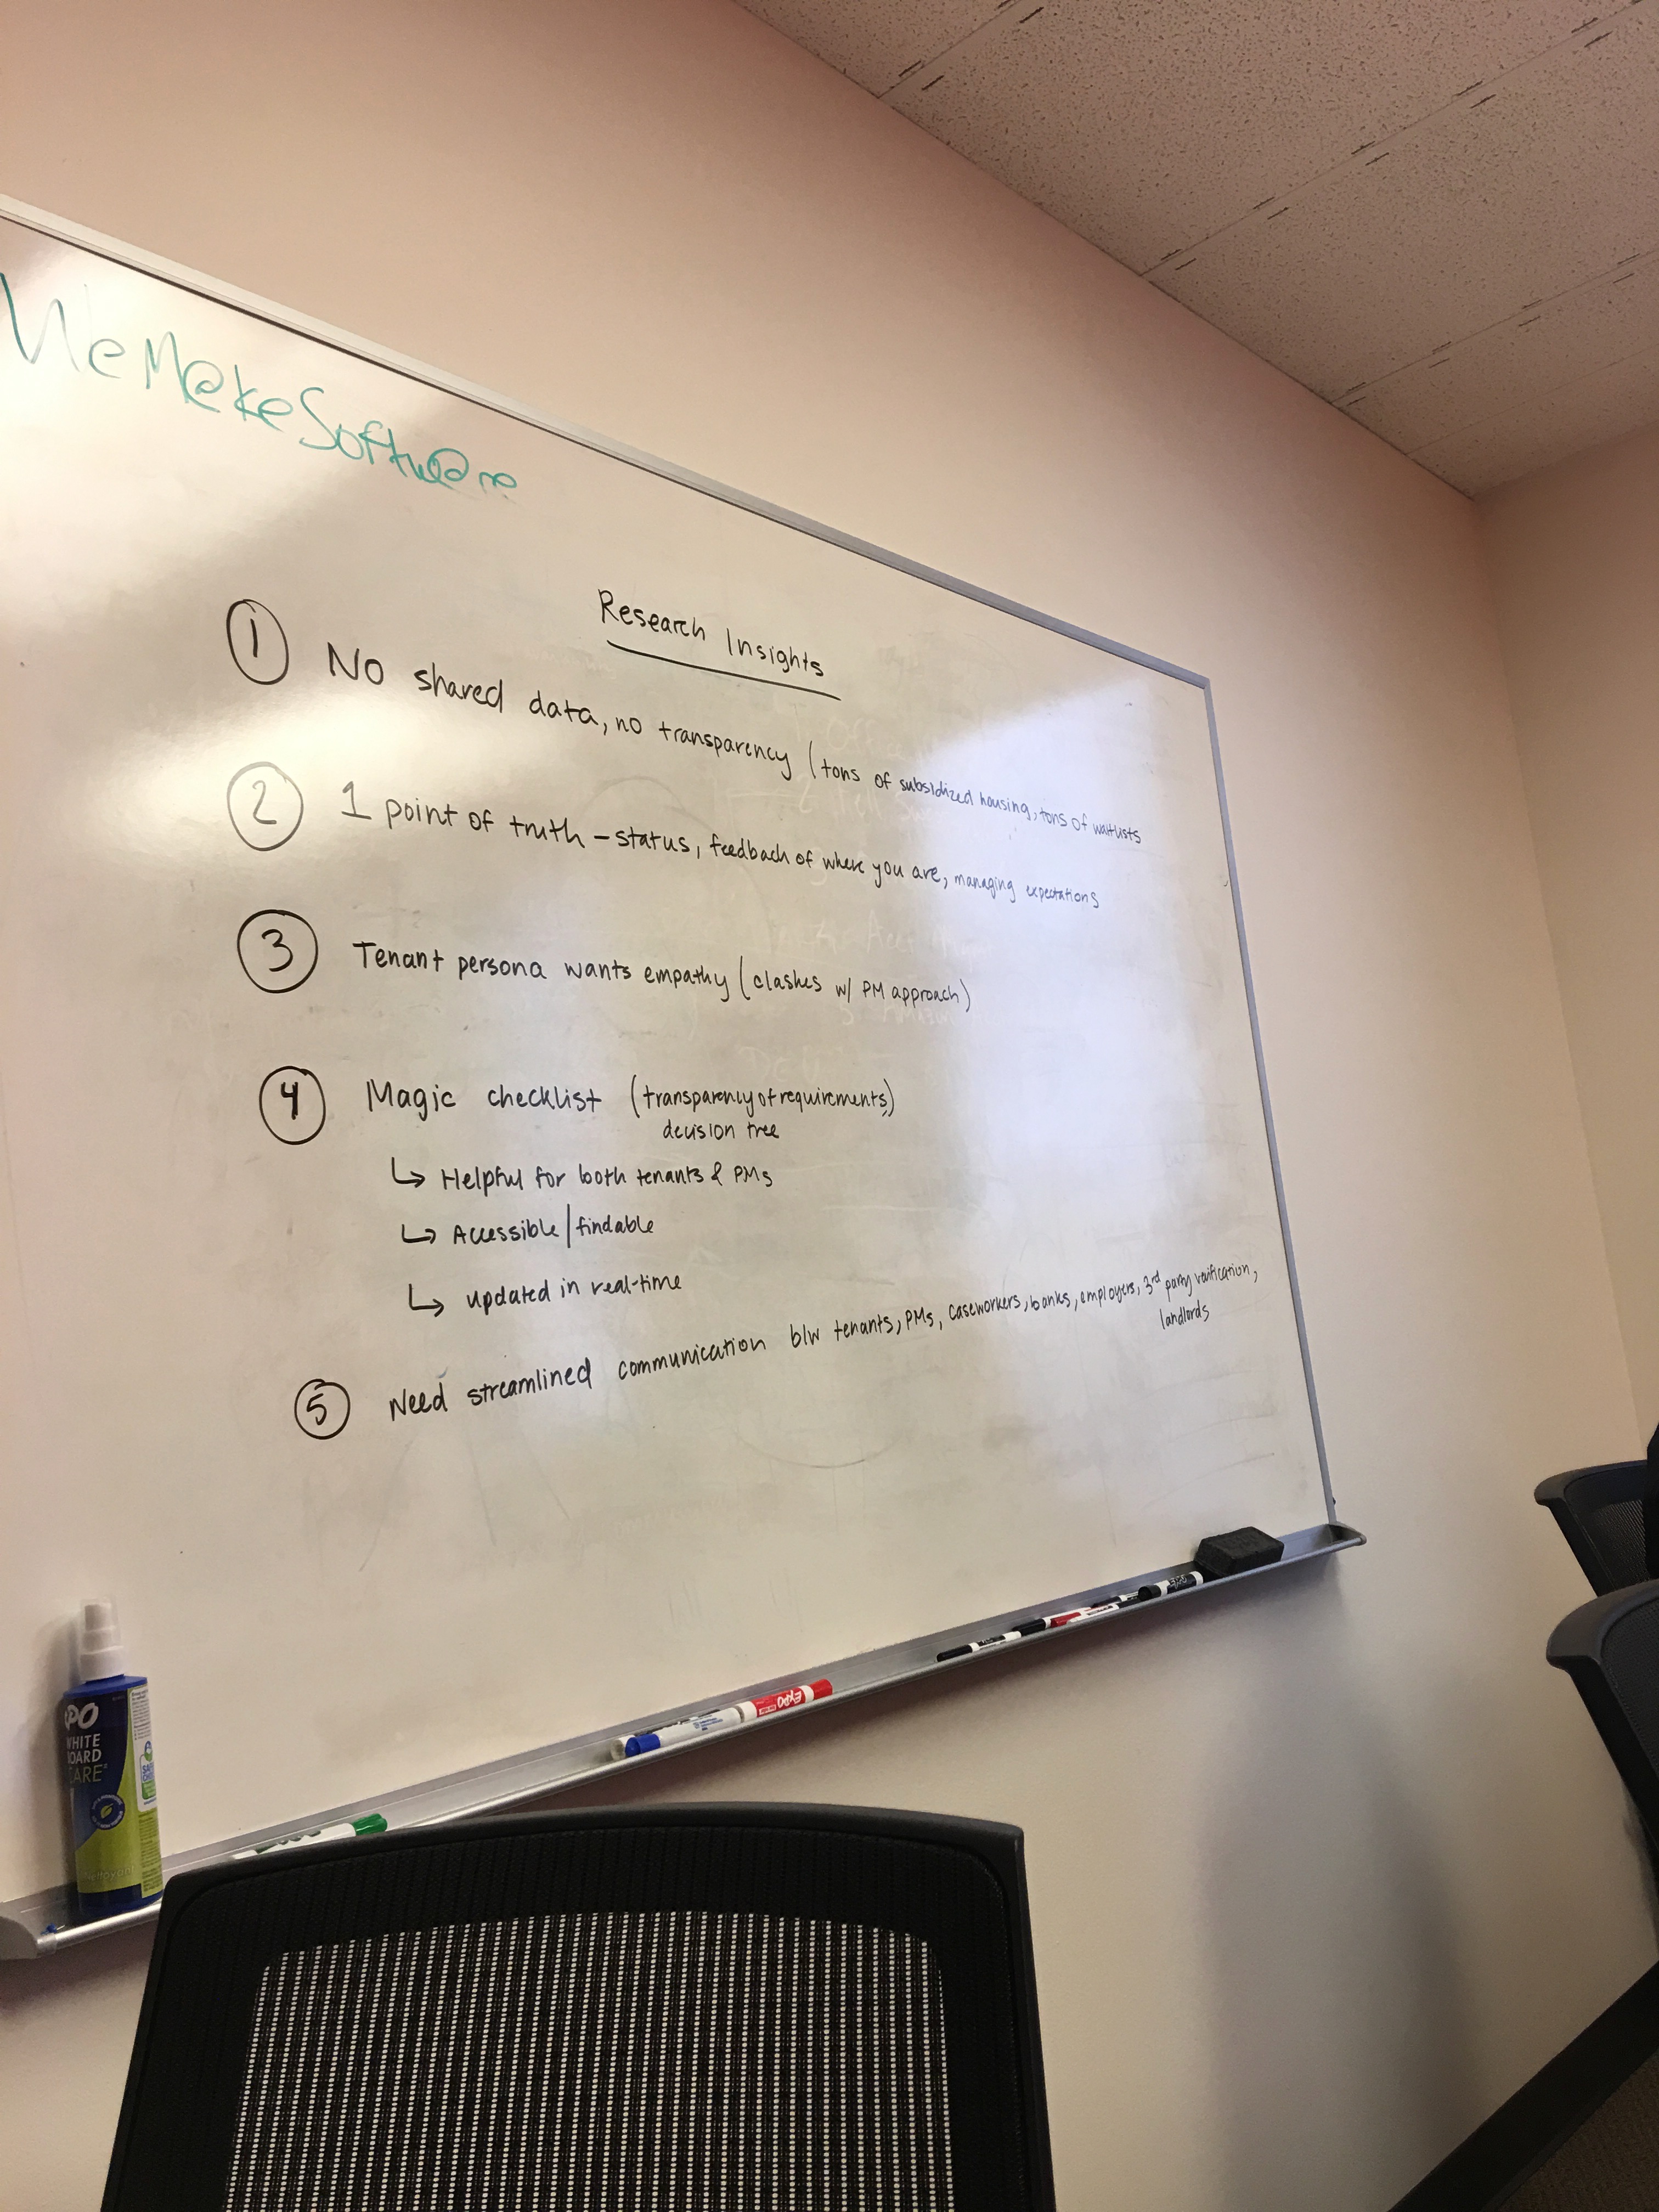 WeM@keSoftw@re
Research Insights
① No shared data, no transparency (tons of subsidized housing, tons of waitlists
② 1 point of truth – status, feedback of where you are, managing expectations
③ Tenant persona wants empathy (clashes w/ PM approach)
④ Magic checklist (transparency of requirements)
decision tree
↳ Helpful for both tenants & PMs
↳ Accessible/findable
↳ updated in real-time
⑤ Need streamlined communication b/w tenants, PMs, caseworkers, banks, employers, 3rd party verification,
landlords
EXPO
WHITE
BOARD
CARE